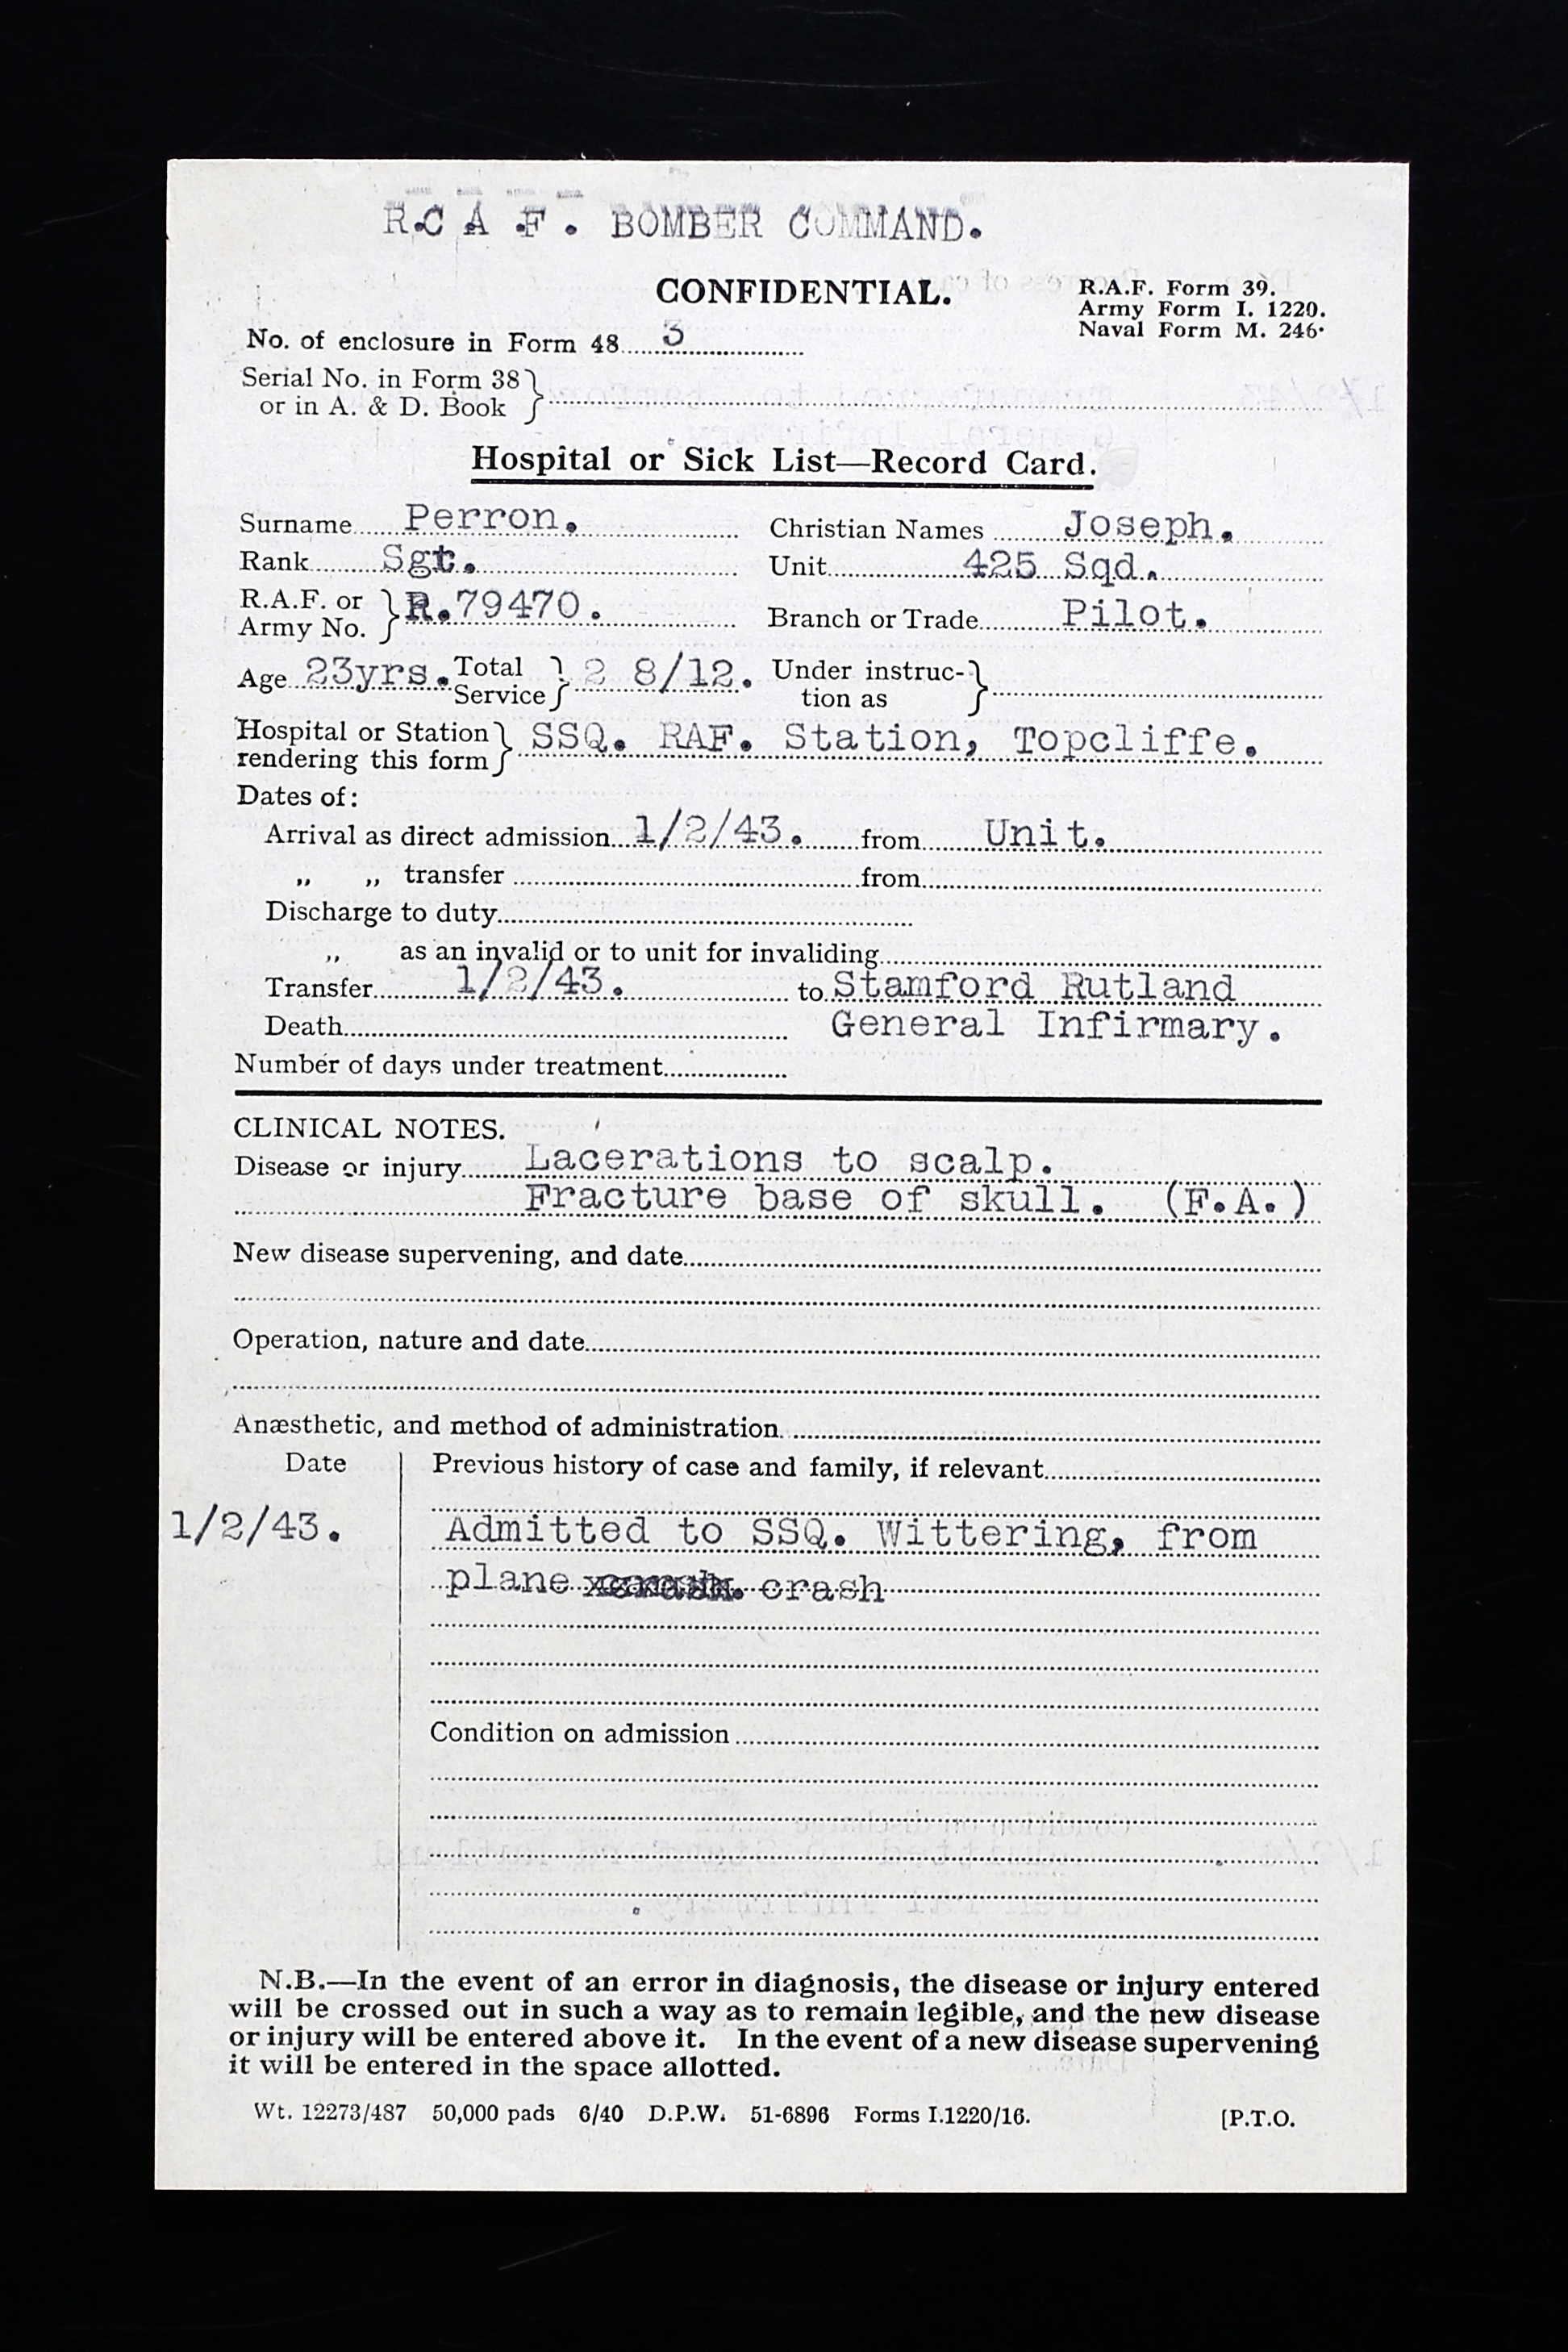 R.C.A.F. BOMBER COMMAND.
CONFIDENTIAL.
R.A.F. Form 39.
Army Form I. 1220.
Naval Form M. 246.
No. of enclosure in Form 48 3
Serial No. in Form 38
or in A. & D. Book
Hospital or Sick List—Record Card.
Surname Perron. Christian Names Joseph.
Rank Sgt. Unit 425 Sqd.
R.A.F. or
Army No. R.79470. Branch or Trade Pilot.
Age 23yrs. Total Service 2 8/12. Under instruction as
Hospital or Station
rendering this form SSQ. RAF. Station, Topcliffe.
Dates of:
Arrival as direct admission 1/2/43. from Unit.
„ „ transfer from
Discharge to duty
„ as an invalid or to unit for invaliding
Transfer 1/2/43. to Stamford Rutland
Death General Infirmary.
Number of days under treatment
CLINICAL NOTES.
Disease or injury Lacerations to scalp.
Fracture base of skull. (F.A.)
New disease supervening, and date
Operation, nature and date
Anæsthetic, and method of administration
Date Previous history of case and family, if relevant
1/2/43. Admitted to SSQ. Wittering, from
plane crash
Condition on admission
N.B.—In the event of an error in diagnosis, the disease or injury entered
will be crossed out in such a way as to remain legible, and the new disease
or injury will be entered above it. In the event of a new disease supervening
it will be entered in the space allotted.
Wt. 12273/487 50,000 pads 6/40 D.P.W. 51-6896 Forms I.1220/16. [P.T.O.